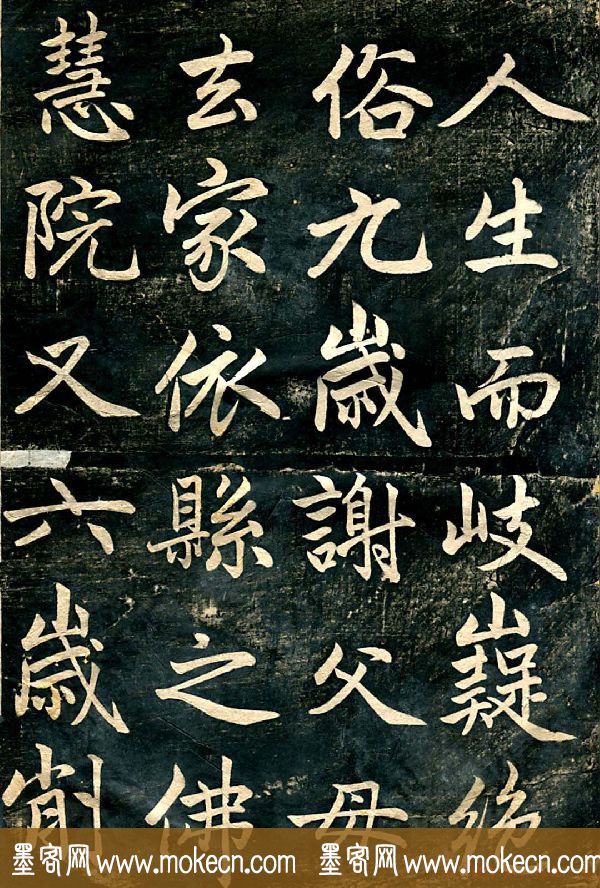 人生而岐嶷絶
俗九歲謝父母
去家依縣之佛
慧院又六歲削
墨客网 www.mokecn.com 墨客网 www.mokecn.com